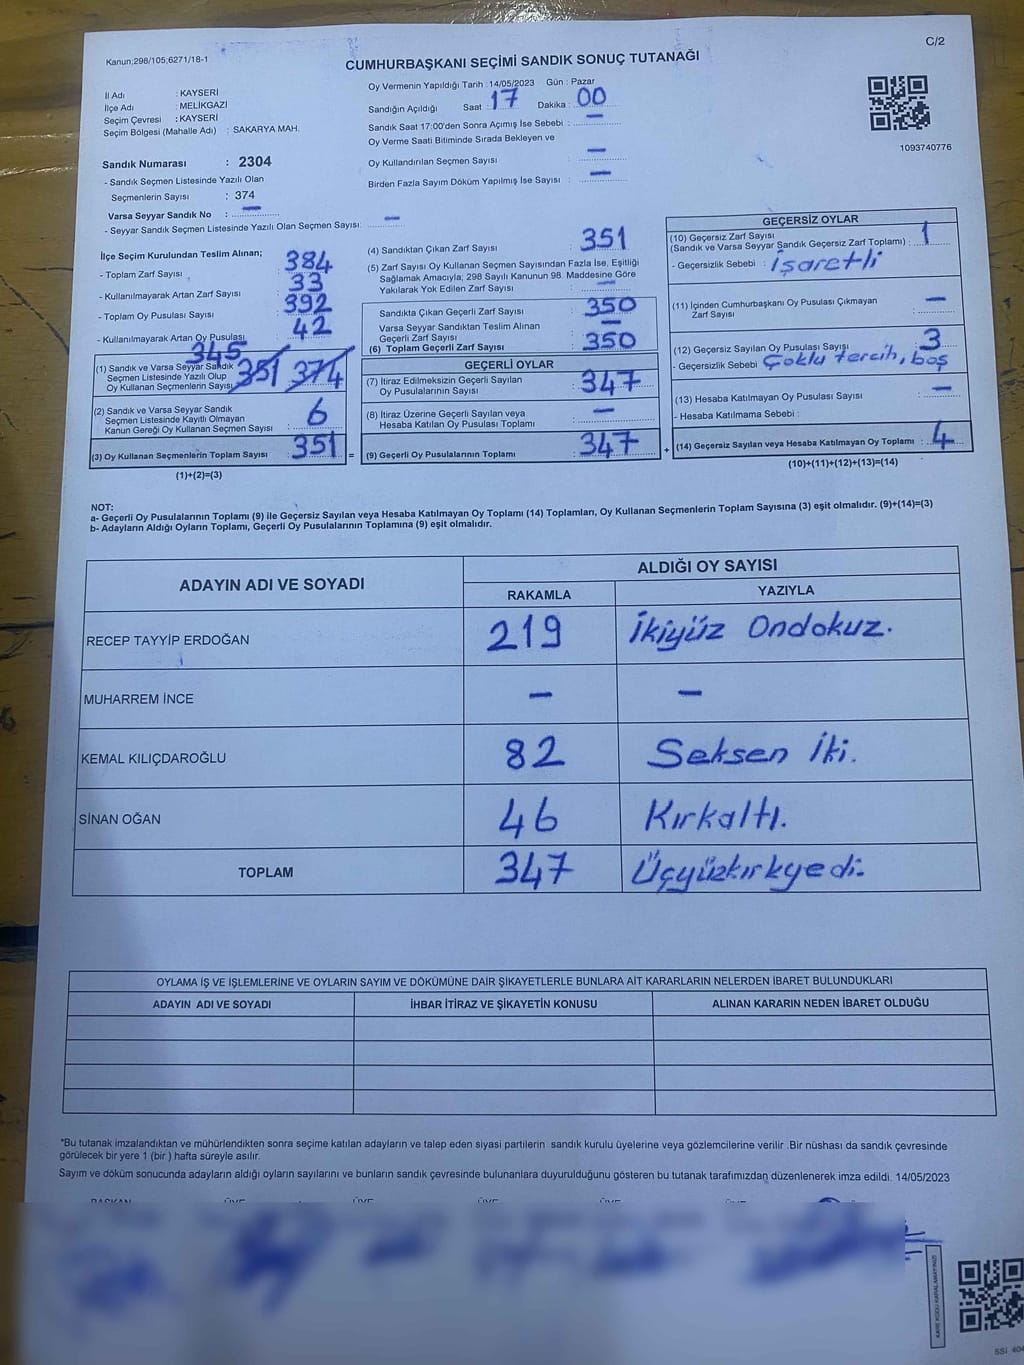 C/2
Kanun;298/105;6271/18-1
CUMHURBAŞKANI SEÇİMİ SANDIK SONUÇ TUTANAĞI
İl Adı : KAYSERİ
İlçe Adı : MELİKGAZİ
Seçim Çevresi : KAYSERİ
Seçim Bölgesi (Mahalle Adı) : SAKARYA MAH.
Oy Vermenin Yapıldığı Tarih : 14/05/2023 Gün : Pazar
Sandığın Açıldığı Saat : 17 Dakika : 00
Sandık Saat 17:00'den Sonra Açımış İse Sebebi : –
Oy Verme Saati Bitiminde Sırada Bekleyen ve
Oy Kullandırılan Seçmen Sayısı : –
Birden Fazla Sayım Döküm Yapılmış İse Sayısı : –
1093740776
Sandık Numarası : 2304
- Sandık Seçmen Listesinde Yazılı Olan
Seçmenlerin Sayısı : 374
Varsa Seyyar Sandık No : –
- Seyyar Sandık Seçmen Listesinde Yazılı Olan Seçmen Sayısı: –
İlçe Seçim Kurulundan Teslim Alınan;
- Toplam Zarf Sayısı 384
- Kullanılmayarak Artan Zarf Sayısı 33
- Toplam Oy Pusulası Sayısı 392
- Kullanılmayarak Artan Oy Pusulası 42
345
(1) Sandık ve Varsa Seyyar Sandık
Seçmen Listesinde Yazılı Olup 351 374
Oy Kullanan Seçmenlerin Sayısı
(2) Sandık ve Varsa Seyyar Sandık
Seçmen Listesinde Kayıtlı Olmayan 6
Kanun Gereği Oy Kullanan Seçmen Sayısı :
(3) Oy Kullanan Seçmenlerin Toplam Sayısı : 351 =
(1)+(2)=(3)
(4) Sandıktan Çıkan Zarf Sayısı : 351
(5) Zarf Sayısı Oy Kullanan Seçmen Sayısından Fazla İse, Eşitliği
Sağlamak Amacıyla; 298 Sayılı Kanunun 98. Maddesine Göre
Yakılarak Yok Edilen Zarf Sayısı : –
Sandıkta Çıkan Geçerli Zarf Sayısı : 350
Varsa Seyyar Sandıktan Teslim Alınan
Geçerli Zarf Sayısı : –
(6) Toplam Geçerli Zarf Sayısı : 350
GEÇERLİ OYLAR
(7) İtiraz Edilmeksizin Geçerli Sayılan
Oy Pusulalarının Sayısı : 347
(8) İtiraz Üzerine Geçerli Sayılan veya
Hesaba Katılan Oy Pusulası Toplamı : –
(9) Geçerli Oy Pusulalarının Toplamı : 347 +
GEÇERSİZ OYLAR
(10) Geçersiz Zarf Sayısı
(Sandık ve Varsa Seyyar Sandık Geçersiz Zarf Toplamı) : 1
- Geçersizlik Sebebi : İşaretli
(11) İçinden Cumhurbaşkanı Oy Pusulası Çıkmayan
Zarf Sayısı : –
(12) Geçersiz Sayılan Oy Pusulası Sayısı : 3
- Geçersizlik Sebebi : Çoklu tercih, boş
(13) Hesaba Katılmayan Oy Pusulası Sayısı : –
- Hesaba Katılmama Sebebi :
(14) Geçersiz Sayılan veya Hesaba Katılmayan Oy Toplamı : 4
(10)+(11)+(12)+(13)=(14)
NOT:
a- Geçerli Oy Pusulalarının Toplamı (9) ile Geçersiz Sayılan veya Hesaba Katılmayan Oy Toplamı (14) Toplamları, Oy Kullanan Seçmenlerin Toplam Sayısına (3) eşit olmalıdır. (9)+(14)=(3)
b- Adayların Aldığı Oyların Toplamı, Geçerli Oy Pusulalarının Toplamına (9) eşit olmalıdır.
ADAYIN ADI VE SOYADI ALDIĞI OY SAYISI
RAKAMLA YAZIYLA
RECEP TAYYİP ERDOĞAN 219 İkiyüz Ondokuz.
MUHARREM İNCE – –
KEMAL KILIÇDAROĞLU 82 Seksen İki.
SİNAN OĞAN 46 Kırkaltı.
TOPLAM 347 Üçyüzkırkyedi.
OYLAMA İŞ VE İŞLEMLERİNE VE OYLARIN SAYIM VE DÖKÜMÜNE DAİR ŞİKAYETLERLE BUNLARA AİT KARARLARIN NELERDEN İBARET BULUNDUKLARI
ADAYIN ADI VE SOYADI İHBAR İTİRAZ VE ŞİKAYETİN KONUSU ALINAN KARARIN NEDEN İBARET OLDUĞU
*Bu tutanak imzalandıktan ve mühürlendikten sonra seçime katılan adayların ve talep eden siyasi partilerin sandık kurulu üyelerine veya gözlemcilerine verilir .Bir nüshası da sandık çevresinde
görülecek bir yere 1 (bir ) hafta süreyle asılır.
Sayım ve döküm sonucunda adayların aldığı oyların sayılarını ve bunların sandık çevresinde bulunanlara duyurulduğunu gösteren bu tutanak tarafımızdan düzenlenerek imza edildi. 14/05/2023
BAŞKAN ÜYE ÜYE ÜYE ÜYE ÜYE
KARE KODU KARALAMAYINIZ!